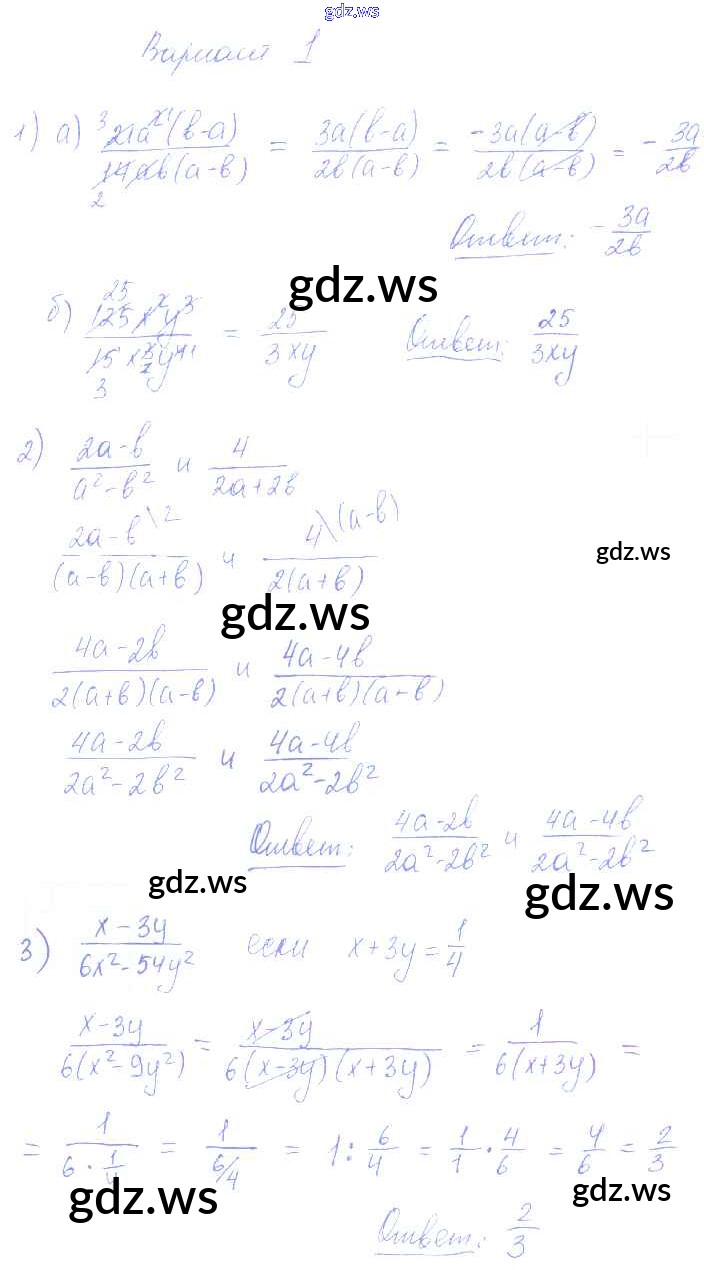 gdz.ws
Вариант 1
1) а) 21a²(b-a) / 14ab(a-b) = 3a(b-a) / 2b(a-b) = -3a(a-b) / 2b(a-b) = - 3a/2b
Ответ: - 3a/2b
gdz.ws
= 25 / 3xy Ответ: 25 / 3xy
2) 2a-b / a²-b² и 4 / 2a+2b
2a-b\2 / (a-b)(a+b) и 4\(a-b) / 2(a+b)
gdz.ws
gdz.ws
4a-2b / 2(a+b)(a-b) и 4a-4b / 2(a+b)(a-b)
4a-2b / 2a²-2b² и 4a-4b / 2a²-2b²
Ответ: 4a-2b / 2a²-2b² и 4a-4b / 2a²-2b²
gdz.ws
gdz.ws
3) x-3y / 6x²-54y² если x+3y = 1/4
x-3y / 6(x²-9y²) = x-3y / 6(x-3y)(x+3y) = 1 / 6(x+3y) =
= 1 / 6·1/4 = 1 / 6/4 = 1 : 6/4 = 1/1 · 4/6 = 4/6 = 2/3
gdz.ws
gdz.ws
Ответ: 2/3